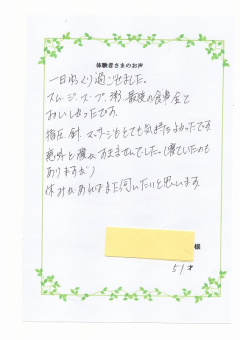 体験者さまのお声
一日ゆっくり過ごせました。
スムージー、スープ、粥、最後の食事全て
おいしかったです。
指圧、針、マッサージもとても気持ちよかったです
意外と腹がすきませんでした。(寝ていたのも
ありますが)
休みがあればまた伺いたいと思います。
様
51才